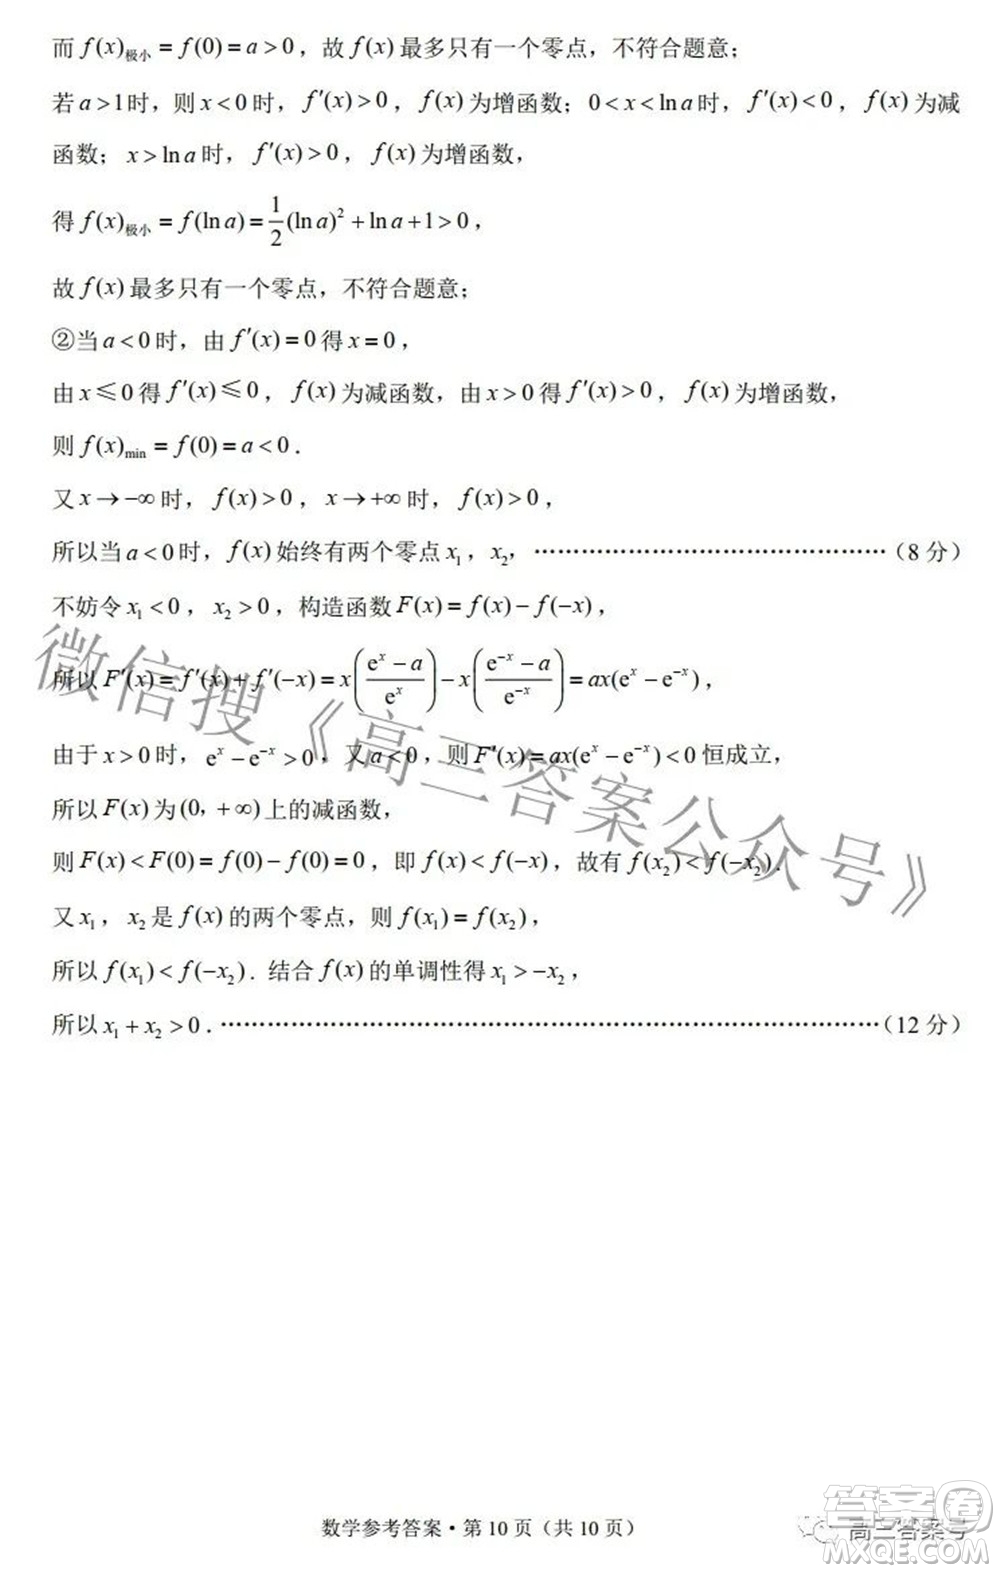 而 f(x)极小 = f(0) = a > 0，故 f(x) 最多只有一个零点，不符合题意；
若 a > 1 时，则 x < 0 时，f′(x) > 0，f(x) 为增函数；0 < x < ln a 时，f′(x) < 0，f(x) 为减
函数；x > ln a 时，f′(x) > 0，f(x) 为增函数，
得 f(x)极小 = f(ln a) = 1/2 (ln a)² + ln a + 1 > 0，
故 f(x) 最多只有一个零点，不符合题意；
②当 a < 0 时，由 f′(x) = 0 得 x = 0，
由 x ≤ 0 得 f′(x) ≤ 0，f(x) 为减函数，由 x > 0 得 f′(x) > 0，f(x) 为增函数，
则 f(x)min = f(0) = a < 0．
又 x → −∞ 时，f(x) > 0，x → +∞ 时，f(x) > 0，
所以当 a < 0 时，f(x) 始终有两个零点 x₁，x₂，……………………………………（8 分）
不妨令 x₁ < 0，x₂ > 0，构造函数 F(x) = f(x) − f(−x)，
所以 F′(x) = f′(x) + f′(−x) = x((eˣ − a)/eˣ) − x((e⁻ˣ − a)/e⁻ˣ) = ax(eˣ − e⁻ˣ)，
由于 x > 0 时，eˣ − e⁻ˣ > 0，又 a < 0，则 F′(x) = ax(eˣ − e⁻ˣ) < 0 恒成立，
所以 F(x) 为 (0，+∞) 上的减函数，
则 F(x) < F(0) = f(0) − f(0) = 0，即 f(x) < f(−x)，故有 f(x₂) < f(−x₂)．
又 x₁，x₂ 是 f(x) 的两个零点，则 f(x₁) = f(x₂)，
所以 f(x₁) < f(−x₂)．结合 f(x) 的单调性得 x₁ > −x₂，
所以 x₁ + x₂ > 0．……………………………………………………………………（12 分）
微信搜《高三答案公众号》
数学参考答案·第 10 页（共 10 页）
高三答案号
答案圈
MXQE.COM